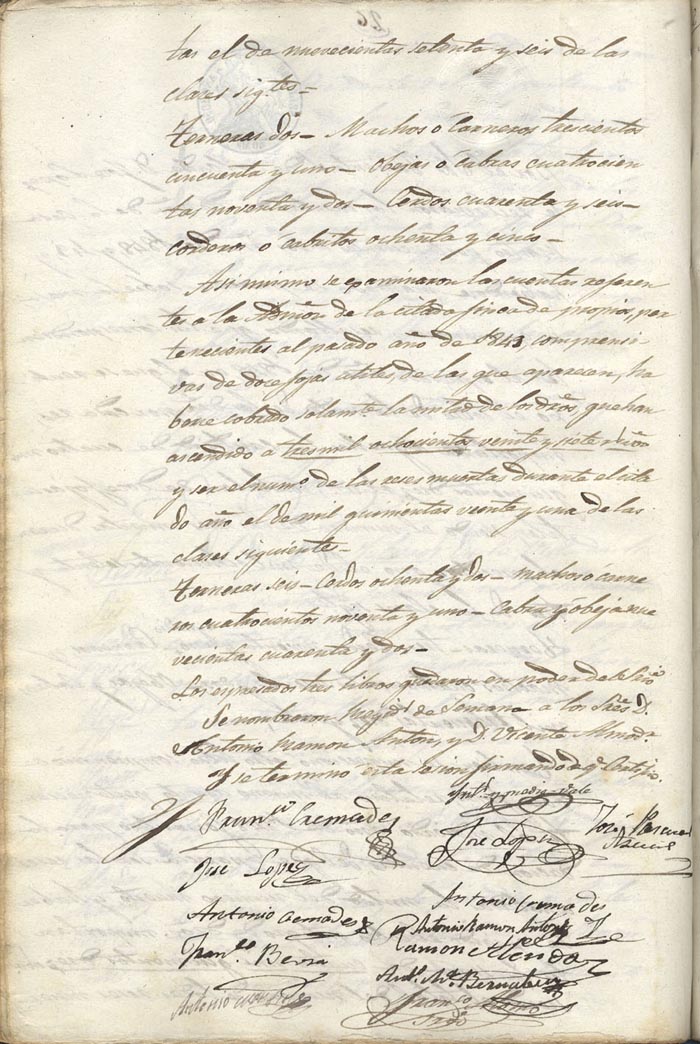 26
tas el de nuevecientas setenta y seis de las
clases sigtes=
Terneras dos= Machos ó Carneros trescientos
cincuenta y uno= Obejas ó cabras cuatrocien
tas noventa y dos= Cerdos cuarenta y seis=
corderos ó cabritos ochenta y cinco=
Asimismo se examinaron las cuentas referen
tes a la Admōn de la citada finca de propios, per
tenecientes al pasado año de 1843, comprensi
vas de doce fojas utiles, de las que aparecen, ha
berse cobrado solamte. la mitad de los dros, que han
ascendido a tres mil ochocientos veinte y siete rs. von
y ser el numo. de las reses muertas durante el cita
do año el de mil quinientas veinte y una de las
clases siguiente=
Terneras seis= Cerdos ochenta y dos= machos ó carne
ros cuatrocientos noventa y uno= Cabras y obejas nue
vecientas cuarenta y dos=
Los espresados tres libros quedaron en poder del Srio.
Se nombraron Regids. de Semana a los Sres. D.
Antonio Ramon Anton, y D. Vicente Almodr.
Y se termino esta sesion firmando de q. Certifico.
Franco. Cremades
José Lopez
José Pascual
José Lopez
Antonio Cremades
Antonio Cremades
Antonio Ramon Anton
Franco. Bevia
Ramon Alenda
Anto. Ma. Bernabeu
Antonio
Franco.
Srio